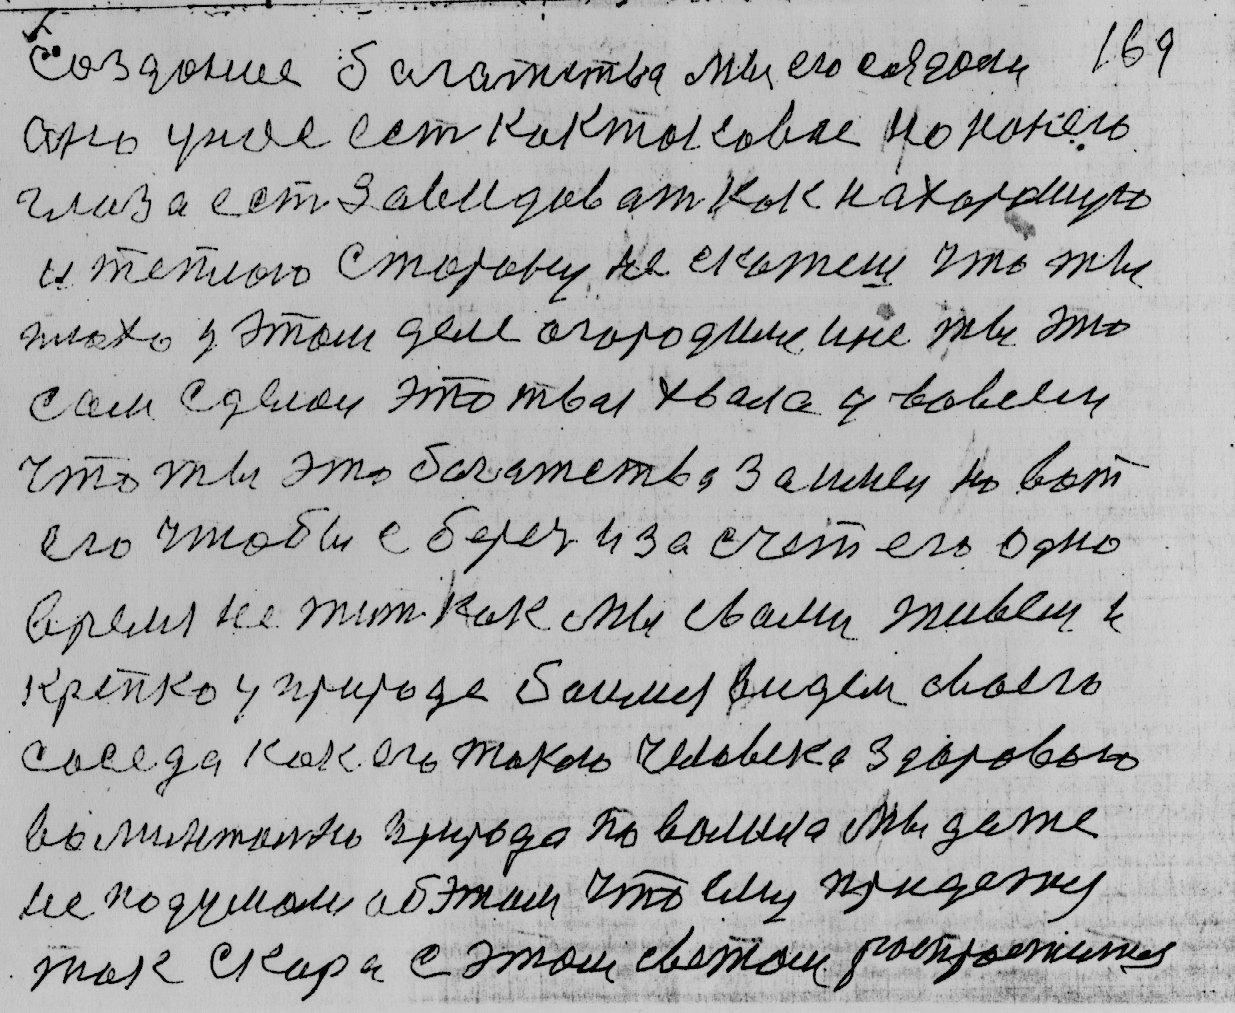 Создание багатства мы его создали 169
оно унас ест как таковое но нанего
глаза ест завидоват как на хорошую
и теплою сторону не скажеш что ты
плохо у этом деле огородился не ты это
сам сделал это твоя хвала у вовсем
что ты это богатство занимел но вот
его чтобы сберечь и за счет его одно
время не жит как мы свами живем и
крепко у природе боимся видем своего
соседа как его такого человека здорового
моментално природа повалила мы даже
не подумали об этом что ему придется
так скора с этом светом роспроститя